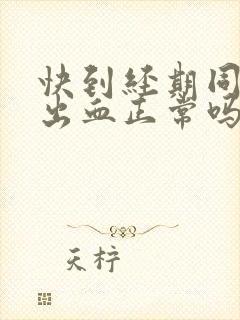 快到经期同
出血正常吗
天柠